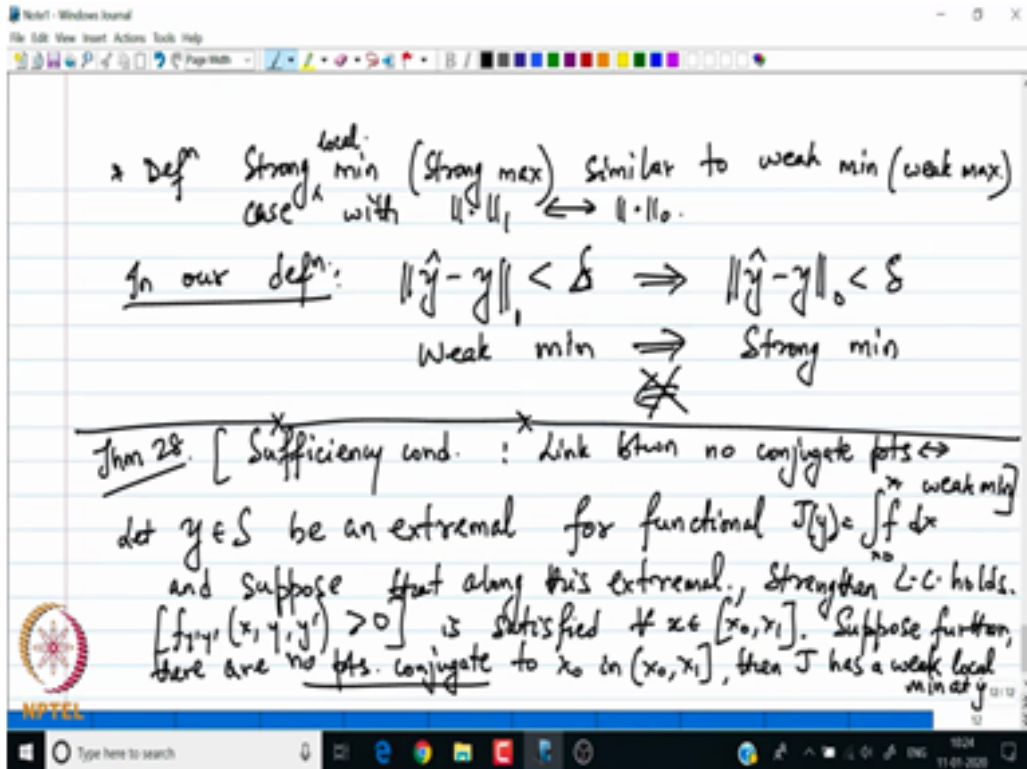 Note1 - Windows Journal
File Edit View Insert Actions Tools Help
Page Width
B I
* Defⁿ Strong local min (Strong max) Similar to weak min (weak max)
case with ‖·‖₁ ↔ ‖·‖₀.
In our defⁿ: ‖ŷ - y‖₁ < δ ⇒ ‖ŷ - y‖₀ < δ
Weak min ⇒ Strong min
Thm 28. [Sufficiency cond. : Link btwn no conjugate pts ↔
weak min]
Let y ∈ S be an extremal for functional J(y) = ∫ f dx
x₀ x₁
and suppose that along this extremal, strengthen L.C. holds.
[f_y'y' (x, y, y') > 0] is satisfied ∀ x ∈ [x₀, x₁]. Suppose further,
there are no pts. conjugate to x₀ in (x₀, x₁], then J has a weak local
min at y
12/12
NPTEL
12
Type here to search
ENG
10:24
11-01-2020